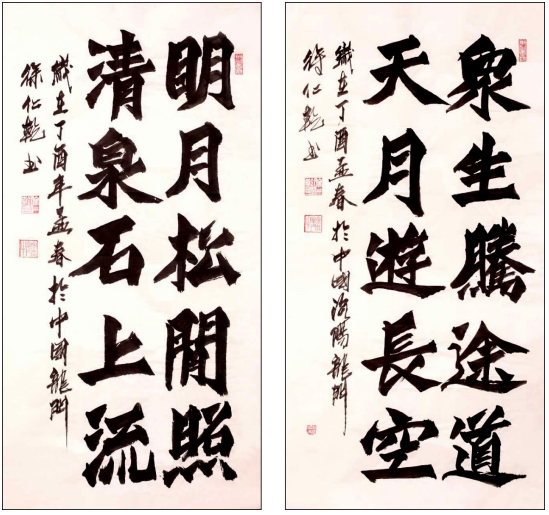 明月松閒照
清泉石上流
歲在丁酉年孟春於中國龍門
徐仁乾书
衆生騰途道
天月遊長空
歲在丁酉孟春於中國洛陽龍門
徐仁乾书